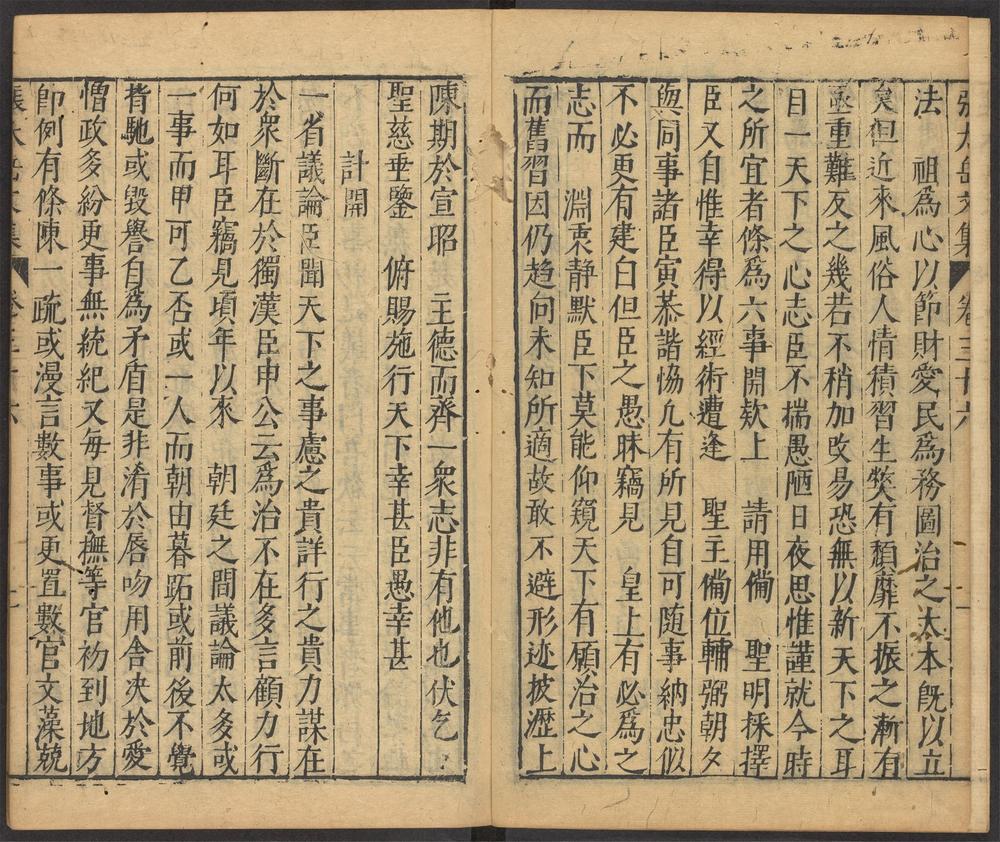 張太岳文集 卷三十六 一
法 祖爲心以節財愛民爲務圖治之大本旣以立
矣但近來風俗人情積習生獘有頹靡不振之漸有
亟重難反之幾若不稍加攺易恐無以新天下之耳
目一天下之心志臣不揣愚陋日夜思惟謹就今時
之所宜者條爲六事開欵上 請用備 聖明採擇
臣又自惟幸得以經術遭逢 聖主備位輔弼朝夕
與同事諸臣寅恭諧恊凢有所見自可随事納忠似
不必更有建白但臣之愚昧竊見 皇上有必爲之
志而 淵衷静默臣下莫能仰窺天下有願治之心
而舊習因仍趋向未知所適故敢不避形迹披瀝上
陳期於宣昭 主德而齊一衆志非有他也伏乞
聖慈垂鑒 俯賜施行天下幸甚臣愚幸甚
計開
一省議論臣聞天下之事慮之貴詳行之貴力謀在
於衆斷在於獨漢臣申公云爲治不在多言顧力行
何如耳臣竊見頃年以來 朝廷之間議論太多或
一事而甲可乙否或一人而朝由暮跖或前後不覺
背馳或毀譽自爲矛盾是非淆於唇吻用舍决於愛
憎政多紛更事無統紀又每見督撫等官初到地方
卽例有條陳一疏或漫言數事或更置數官文藻兢
張太岳文集 卷三十六